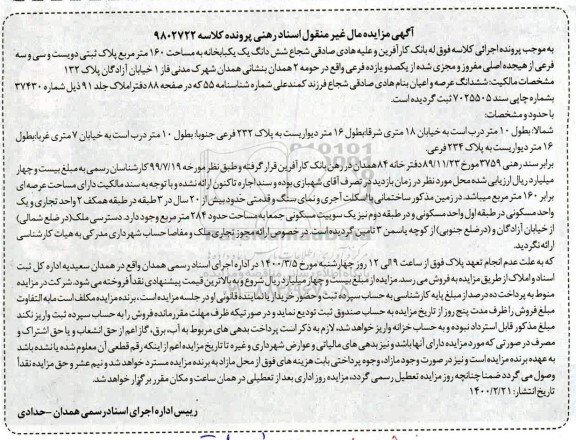 آگهی مزایده مال غیر منقول اسناد رهنی پرونده کلاسه ۹۸۰۲۷۲۲
به موجب پرونده اجرائی کلاسه فوق له بانک کارآفرین و علیه هادی صادقی شجاع شش دانگ یک یکبابخانه به مساحت ۱۶۰ متر مربع پلاک ثبتی دویست و سی و سه
فرعی از هیجده اصلی مفروز و مجزی شده از یکصد و یازده فرعی واقع در حومه ۲ همدان بنشانی همدان شهرک مدنی فاز ۱ خیابان آزادگان پلاک ۱۳۲
مشخصات مالکیت: ششدانگ عرصه و اعیان بنام هادی صادقی شجاع فرزند کمندعلی شماره شناسنامه ۵۵ که در صفحه ۸۸ دفتر املاک جلد ۹۱ ذیل شماره ۳۷۴۳۰
بشماره چاپی سند ۷۰۲۵۵۰۵ ثبت گردیده است.
با حدود و مشخصات:
شمالا: بطول ۱۰ متر درب است به خیابان ۱۸ متری شرقا بطول ۱۶ متر دیواریست به پلاک ۲۳۲ فرعی جنوبا: بطول ۱۰ متر درب است به خیابان ۷ متری غربا: بطول
۱۶ متر دیواریست به پلاک ۲۳۴ فرعی.
برابر سند رهنی ۳۷۵۹ مورخ ۸۹/۱۱/۲۳ دفترخانه ۸۴ همدان در رهن بانک کارآفرین قرار گرفته و طبق نظر مورخه ۹۹/۷/۱۹ کارشناسان رسمی به مبلغ بیست و چهار
میلیارد ریال ارزیابی شده محل مورد نظر در زمان بازدید در تصرف آقای شهبازی بوده و سند اجاره تاکنون ارائه نشده و با توجه به سند مالکیت دارای مساحت عرصه ای
برابر ۱۶۰ متر مربع میباشد. در زمین مذکور ساختمانی با اسکلت آجری و نمای سنگ و قدمتی حدود بیش از ۲۰ سال در ۳ طبقه در طبقه همکف ۲ واحد تجاری و یک
واحد مسکونی در طبقه اول واحد مسکونی و در طبقه دوم نیز یک سوییت مسکونی جمعا به مساحت حدود ۲۸۴ متر مربع وجود دارد. دسترسی ملک (در ضلع شمالی)
از خیابان آزادگان و (در ضلع جنوبی) از کوچه یاسمن ۳ تامین گردیده است. در خصوص ارائه مجوز تجاری ملک و مفاصا حساب شهرداری مدرکی به هیات کارشناسی
ارائه نگردید.
که به علت عدم انجام تعهد پلاک فوق از ساعت ۹ الی ۱۲ روز چهارشنبه مورخ ۱۴۰۰/۳/۵ در اداره اجرای اسناد رسمی همدان واقع در همدان سعیدیه اداره کل ثبت
اسناد و املاک از طریق مزایده به فروش می رسد. مزایده از مبلغ بیست و چهار میلیارد ریال شروع و به بالاترین قیمت پیشنهادی نقداً فروخته می شود. شرکت در مزایده
منوط به پرداخت ده درصد از مبلغ پایه کارشناسی به حساب سپرده ثبت و حضور خریدار یا نماینده قانونی او در جلسه مزایده است. برنده مزایده مکلف است مابه التفاوت
مبلغ فروش را ظرف مدت پنج روز از تاریخ مزایده به حساب صندوق ثبت تودیع نماید و در صورتیکه ظرف مهلت مقرر مانده فروش را به حساب سپرده ثبت واریز نکند
مبلغ مذکور قابل استرداد نبوده و به حساب خزانه واریز خواهد شد، لازم به ذکر است پرداخت بدهی های مربوط به آب، برق، گاز اعم از حق انشعاب و یا حق اشتراک و
مصرف در صورتی که مورد مزایده دارای آنها باشد و نیز بدهی های مالیاتی و عوارض شهرداری و غیره تا تاریخ مزایده اعم از اینکه رقم قطعی آن معلوم شده یا نشده باشد
به عهده برنده مزایده است و نیز در صورت وجود مازاد، وجوه پرداختی بابت هزینه های فوق از محل مازاد به برنده مزایده مسترد خواهد شد و نیم عشر و حق مزایده نقداً
وصول می گردد ضمنا چنانچه روز مزایده تعطیل رسمی گردد، مزایده روز اداری بعد از تعطیلی در همان ساعت و مکان مقرر برگزار خواهد شد.
تاریخ انتشار: ۱۴۰۰/۲/۲۱
رییس اداره اجرای اسناد رسمی همدان - حدادی